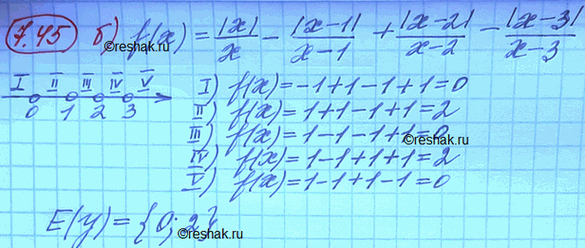 7.45 б) f(x) = |x|/x − |x−1|/(x−1) + |x−2|/(x−2) − |x−3|/(x−3)
©reshak.ru ©reshak.ru
I II III IV V
0 1 2 3
I) f(x) = −1+1−1+1=0
II) f(x) = 1+1−1+1=2
III) f(x) = 1−1−1+1=0
IV) f(x) = 1−1+1+1=2
V) f(x) = 1−1+1−1=0
E(y) = {0; 2}
©reshak.ru ©reshak.ru